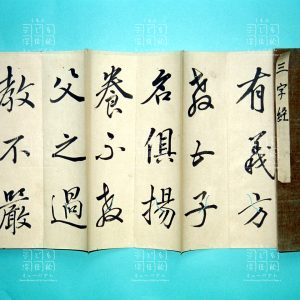 三字経
有義方
教五子
名俱揚
養不教
父之過
教不嚴